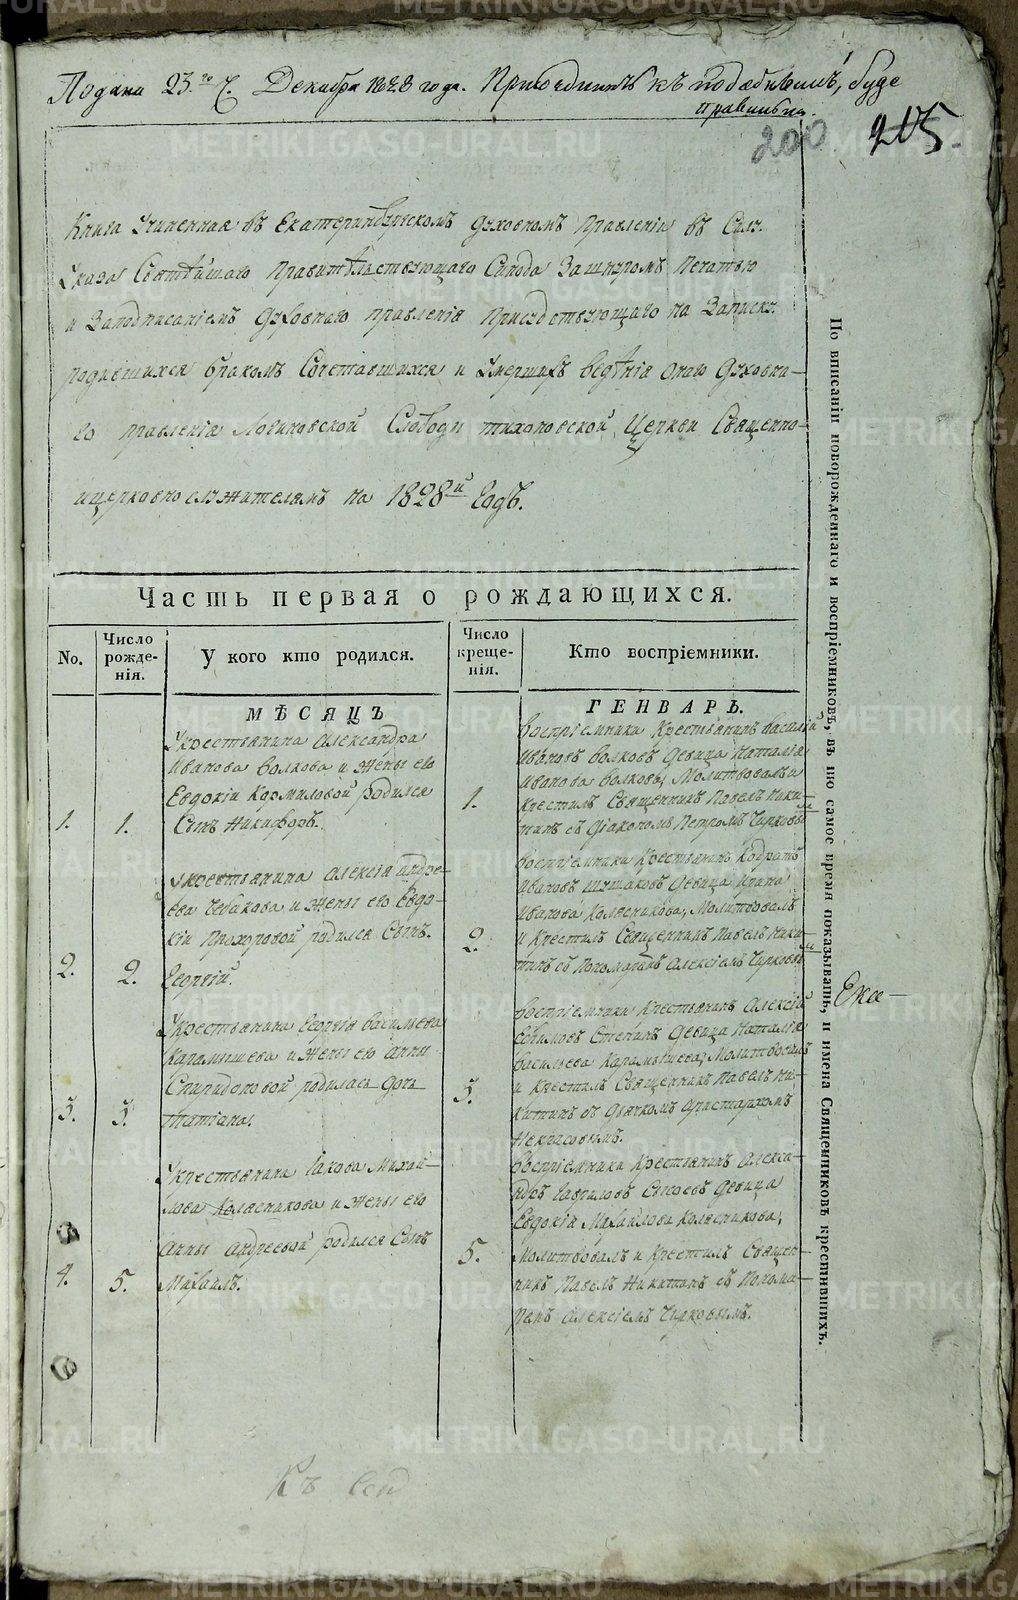 Подана 23.го Ч. Декабря 1828 года. Приобщить къ подобнымъ, буде
правильна.
200 215
Книга Учиненная въ Екатеринбургскомъ духовномъ Правленіи въ Силу
Указа Святѣйшаго Правительствующаго Синода За шнуромъ Печатью
и Заподписаніемъ Духовнаго правленія Присудствующаго на Записку
родившихся бракомъ Сочетавшихся и Умершихъ вѣденія онаго Духовна-
го правленія Логиновской Слободы тихоновской Церкви Священно-
ицерковно служителямъ на 1828й Годъ.
Часть первая о рождающихся.
No.
Число рожде-нія.
У кого кто родился.
Число креще-нія.
Кто воспріемники.
МѢСЯЦЪ ГЕНВАРЬ.
1. 1.
Укрестьянина Александра
Иванова Волкова и Жены его
Евдокіи Кормиловой родился
Сынъ Никифоръ.
1.
Воспріемники Крестьянинъ Василій
Ивановъ Волковъ Девица Наталія
Иванова Волкова, Молитвовалъ и
Крестилъ Священникъ Павелъ Ники-
тинъ съ Діакономъ Петромъ Чирковымъ
2. 2.
Укрестьянина Алексія Андре-
ева Чебакова и Жены его Евдо-
кіи Прохоровой родился Сынъ
Георгій.
2.
Воспріемники Крестьянинъ Кодратъ
Ивановъ Шишаковъ Девица Ирина
Иванова Колясникова, Молитвовалъ
и Крестилъ Священникъ Павелъ Ники-
тинъ съ Пономаремъ Алексіемъ Чирковымъ
3. 3.
Укрестьянина Георгія Васильева
Карамышева и Жены его Анны
Спиридоновой родилась дочь
Татіана.
3.
Воспріемники Крестьянинъ Алексій
Степинъ Девица Наталія
Васильева Карамышева, Молитвовалъ
и Крестилъ Священникъ Павелъ Ни-
китинъ съ Дьячкомъ Аристархомъ
Некрасовымъ.
4. 5.
Укрестьянина Іакова Михай-
лова Колясникова и Жены его
Анны Андреевой родился Сынъ
Михаилъ.
5.
Воспріемники Крестьянинъ Алекса-
ндръ Гавриловъ Девица
Евдокія Михайлова Колясникова,
Молитвовалъ и Крестилъ Священ-
никъ Павелъ Никитинъ съ Понома-
ремъ Алексіемъ Чирковымъ.
По вписаніи новорожденнаго и воспріемниковъ, въ то самое время показывать, и имена Священниковъ крестившихъ.
Ека-
METRIKI.GASO-URAL.RU